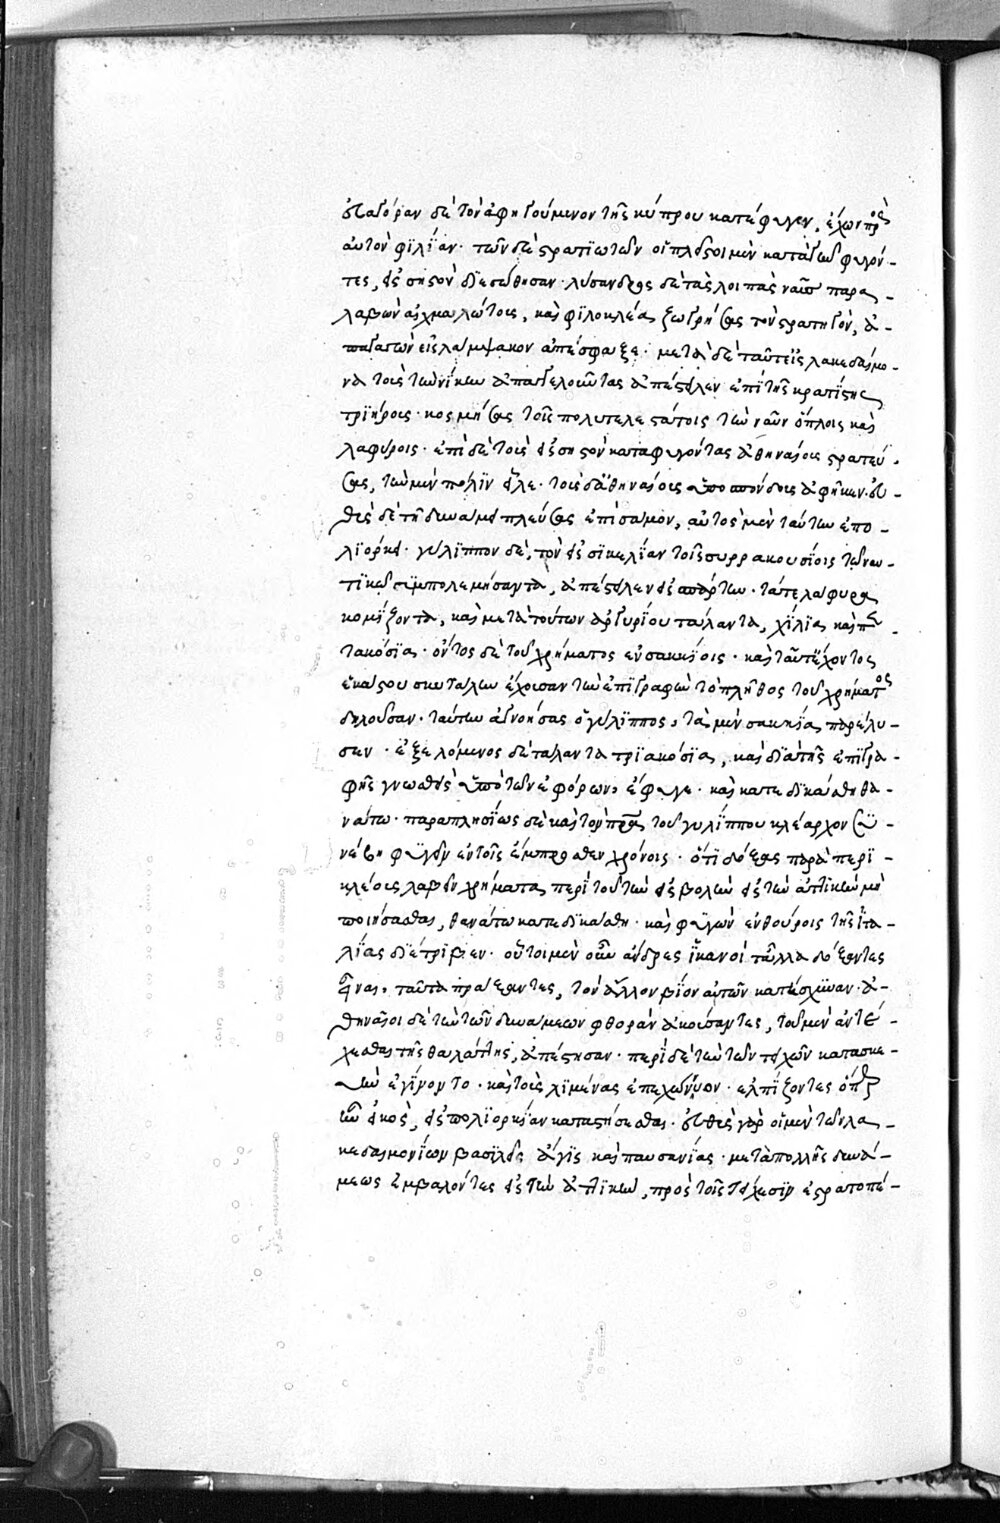 εὐαγόραν δὲ τὸν ἀφηγούμενον τῆς κύπρου κατέφυγεν, ἔχων πρὸς
αὐτὸν φιλίαν· τῶν δὲ στρατιωτῶν οἱ πλεῖστοι μὲν κατὰ γῆν φυγόν-
τες, εἰς σηστὸν διεσώθησαν· λύσανδρος δὲ τὰς λοιπὰς ναῦς παρα-
λαβὼν αἰχμαλώτους, καὶ φιλοκλέα ζωγρήσας τὸν στρατηγὸν, ἀ-
παγαγὼν εἰς λαμψακον ἀπέσφαξε· μετὰ δὲ ταῦτ εἰς λακεδαίμο-
να τοὺς τὴν νίκην ἀπαγγελοῦντας ἀπέστειλεν ἐπὶ τῆς κρατίστης
τριήρους· κοσμήσας τοῖς πολυτελεστάτοις τὴν ναῦν ὅπλοις καὶ
λαφύροις· ἐπὶ δὲ τοὺς εἰς σηστὸν καταφυγόντας ἀθηναίους στρατεύ-
σας, τὴν μὲν πόλιν εἷλε· τοὺς δ ἀθηναίους ὑποσπόνδους ἀφῆκεν· εὐ-
θὺς δὲ τῆ δυνάμει πλεύσας ἐπὶ σαμον, αὐτὸς μὲν ταύτην ἐπο-
λιόρκει· γύλιππον δὲ, τὸν εἰς σικελίαν τοῖς συρρακουσίοις τῶ ναυ-
τικῶ συμπολεμήσαντα, ἀπέστειλεν εἰς σπάρτην· τά τε λάφυρα
κομίζοντα, καὶ μετὰ τούτων ἀργυρίου τάλαντα, χίλια καὶ πεν-
τακόσια· ὄντος δὲ τοῦ χρήματος ἐν σακκίοις· καὶ ταῦτ ἔχοντος
ἑκάστου σκυτάλην ἔχουσαν τὴν ἐπιγραφὴν τὸ πλῆθος τοῦ χρήματος
δηλοῦσαν· ταύτην ἀγνοήσας ὁ γύλιππος, τὰ μὲν σακκία παρέλυ-
σεν· ἐξελόμενος δὲ τάλαντα τριακόσια, καὶ διὰ τῆς ἐπιγρα-
φῆς γνωσθεὶς ὑπὸ τῶν ἐφόρων, ἔφυγε· καὶ κατεδικάσθη θα-
νάτω· παραπλησίως δὲ καὶ τὸν πατέρα τοῦ γυλίππου κλέαρχον συ-
νέβη φυγεῖν ἐν τοῖς ἔμπροσθεν χρόνοις· ὅτι δόξας παρὰ περι-
κλέους λαβεῖν χρήματα, περὶ τοῦ τὴν εἰσβολὴν εἰς τὴν ἀττικὴν μὴ
ποιήσασθαι, θανάτω κατεδικάσθη· καὶ φυγὼν ἐν θουρίοις τῆς ἰτα-
λίας διέτριβεν· οὗτοι μὲν οὖν ἄνδρες ἱκανοὶ τἄλλα δόξαντες
εἶναι, ταῦτα πράξαντες, τὸν ἄλλον βίον αὐτῶν κατῄσχυναν· ἀ-
θηναῖοι δὲ τὴν τῶν δυνάμεων φθορὰν ἀκούσαντες, τοῦ μὲν ἀντέ-
χεσθαι τῆς θαλάττης, ἀπέστησαν· περὶ δὲ τὴν τῶν τειχῶν κατασκε-
υὴν ἐγίνοντο· καὶ τοὺς λιμένας ἐπεχώννυον· ἐλπίζοντες ὅπερ
ἦν εἰκὸς, εἰς πολιορκίαν καταστήσεσθαι· εὐθὺς γὰρ οἱ μὲν τῶν λα-
κεδαιμονίων βασιλεῖς ἆγις καὶ παυσανίας· μετὰ πολλῆς δυνά-
μεως ἐμβαλόντες εἰς τὴν ἀττικὴν, πρὸς τοῖς τείχεσιν ἐστρατοπέ-